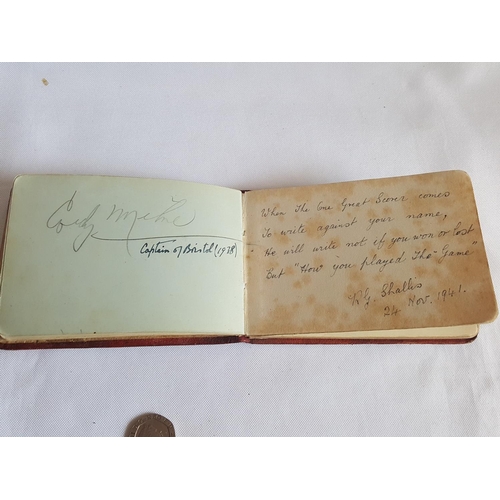 Captain of Bristol (1938)
When The One Great Scorer comes
To write against your name,
He will write not if you won or lost
But "How you played The Game"
Shallis
24 Nov. 1941.